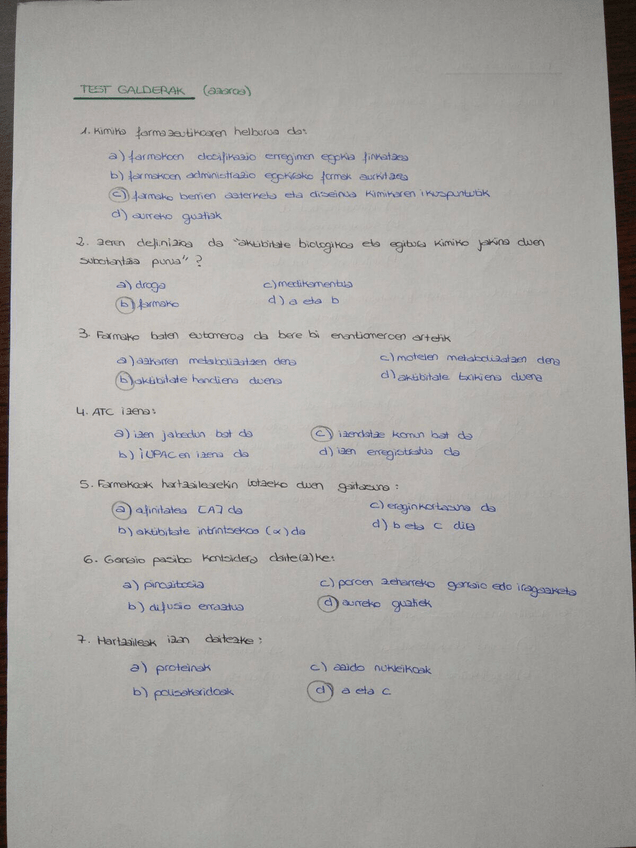 TEST GALDERAK (azaroa)
1. Kimika farmazeutikoaren helburua da:
a) farmakoen dosifikazio erregimen egokia finkatzea
b) farmakoen administrazio egokirako formak aurkitzea
c) farmako berrien azterketa eta diseinua kimikaren ikuspuntutik
d) aurreko guztiak
2. Zeren definizioa da "aktibitate biologikoa eta egitura kimiko jakina duen
substantzia purua" ?
a) droga
c) medikamentua
b) farmako
d) a eta b
3. Farmako baten eutomeroa da bere bi enantiomeroen artetik
a) azkarren metabolizatzen dena
c) motelen metabolizatzen dena
b) aktibitate handiena duena
d) aktibitate txikiena duena
4. ATC izena:
a) izen jabedun bat da
c) izendatze komun bat da
b) IUPACen izena da
d) izen erregistratua da
5. Farmakoak hartzailearekin lotzeko duen gaitasuna:
a) afinitatea [A] da
c) eraginkortasuna da
b) aktibitate intrintsekoa (α) da
d) b eta c dira
6. Garraio pasibo kontsidera daite(z)ke:
a) pinozitosia
c) poroen zeharreko garraio edo iragazketa
b) difusio erraztua
d) aurreko guztiak
7. Hartzaileak izan daitezke:
a) proteinak
c) azido nukleikoak
b) polisakaridoak
d) a eta c